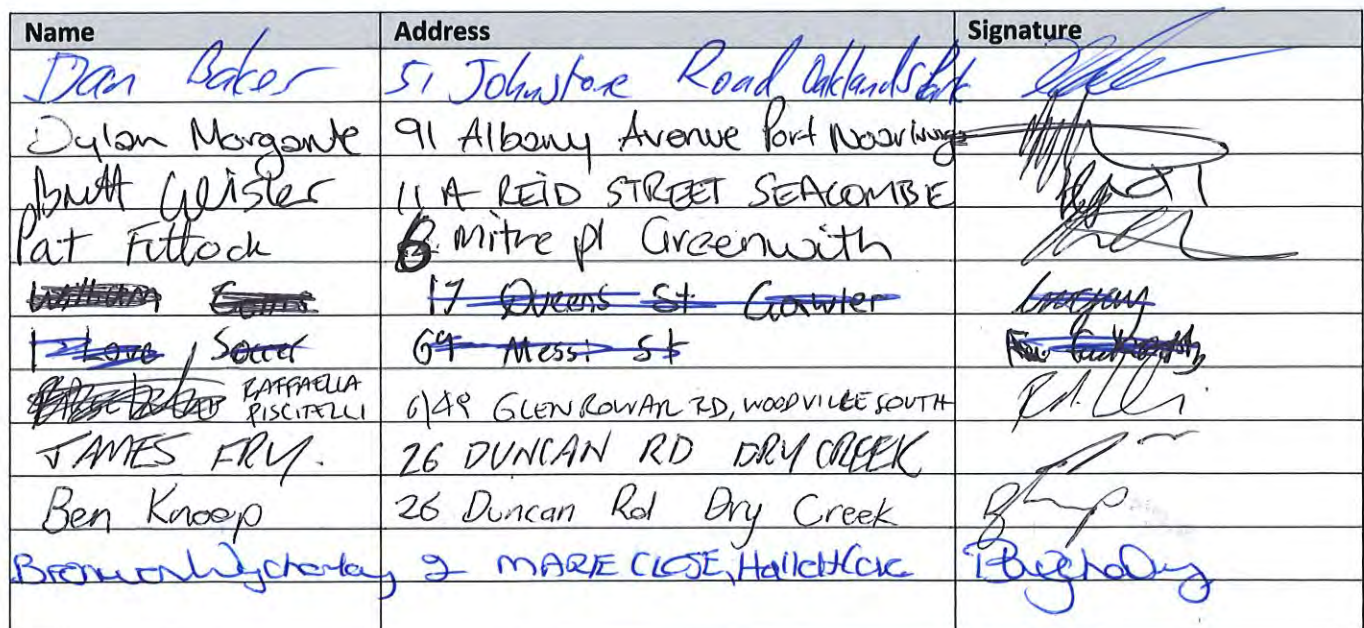 Name Address Signature
Dan Baker 51 Johnstone Road Oaklands Park
Dylan Morgante 91 Albany Avenue Port Noarlunga
Brett Glister 11 A REID STREET SEACOMBE
Pat Fittock 6 mitre pl Greenwith
17 Queens St Gawler
I Love Soccer 69 Messi St
RAFFAELLA
PISCITELLI 6/49 GLENROWAN RD, WOODVILLE SOUTH
JAMES FRY. 26 DUNCAN RD DRY CREEK
Ben Knoop 26 Duncan Rd Dry Creek
Bronwen Wycherley 2 MARIE CLOSE, Hallett Cove